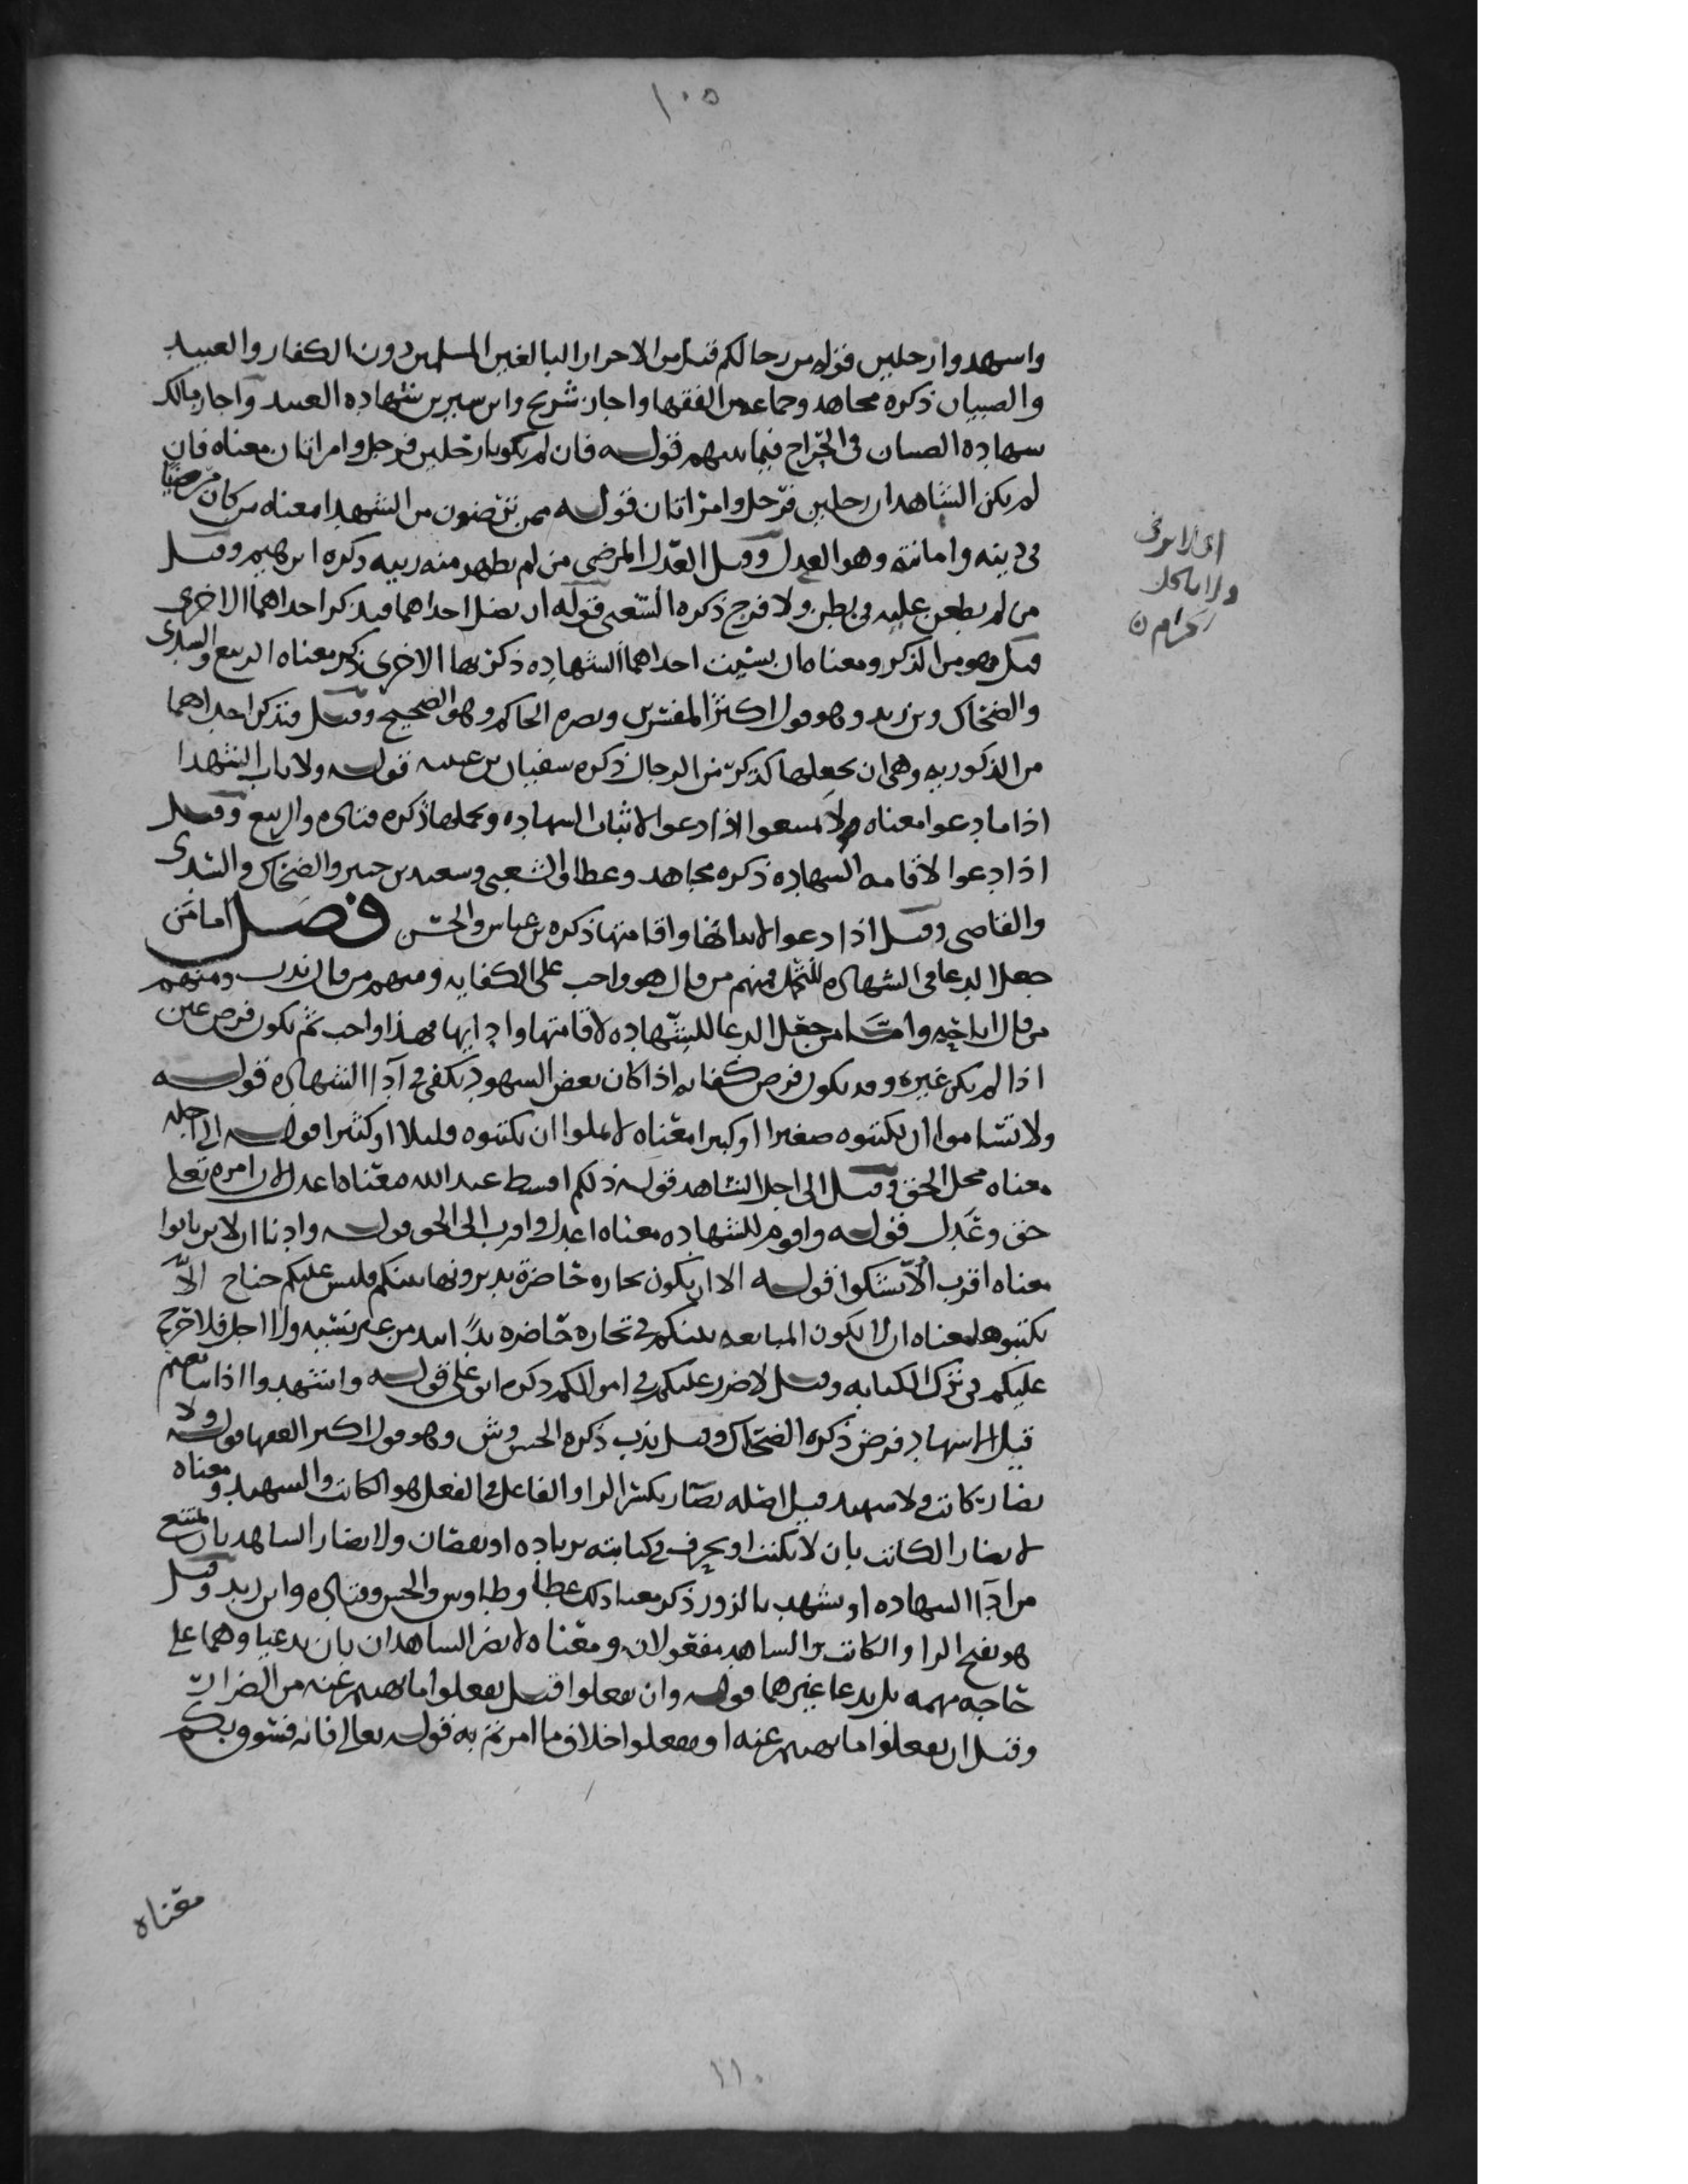 ١٠٥
واسهدوا رجلين قوله من رجالكم قيل من الاحرار البالغين المسلمين دون الكفار والعبيد
والصبيان ذكره مجاهد وجماعه من الفقها واجاز شريح وابن سيرين شهاده العبيد واجاز مالك
سهاده الصبيان في الجراح فيما بينهم قوله فان لم يكونا رجلين فرجل وامراتان معناه فان
لم يكن الشاهدان رجلين فرجل وامراتان قوله ممن ترضون من الشهدا معناه من كان مرضيا
في دينه وامانته وهو العدل وقيل العدل المرضي من لم يظهر منه ريبه ذكره ابرهيم وقيل
من لم يطعن عليه في بطن ولا فرج ذكره الشعبي قوله ان تضل احداهما فتذكر احداهما الاخرى
اي لا يزني
ولا ياكل
حرام ن
قيل هو من الذكر ومعناه ان نسيت احداهما الشهاده ذكرتها الاخرى ذكر معناه الربيع والسدي
والضحاك وبن زيد وهو قول اكثر المفسرين ونصره الحاكم وهو الصحيح وقيل فتذكر احداهما
من الذكوريه وهي ان تجعلها كذكر من الرجال ذكره سفيان بن عيينه قوله ولا ياب الشهدا
اذا ما دعوا معناه ولا تمتنعوا اذا دعوا لاثبات الشهاده وتحملها ذكره قتاده والربيع وقيل
اذا دعوا لاقامه الشهاده ذكره مجاهد وعطا والشعبي وسعيد بن جبير والضحاك والسدي
والقاضي وقيل اذا دعوا لاثباتها واقامتها ذكره بن عباس والحسن فصل اما من
جعل الدعا في الشهاده للتحمل فمنهم من قال هو واجب على الكفايه ومنهم من قال ندب ومنهم
من قال اباحه واما من جعل الدعا للشهاده لاقامتها وادايها فهذا واجب ثم يكون فرض عين
اذا لم يكن غيره وقد يكون فرض كفايه اذا كان بعض الشهود يكفي في آدا الشهاده قوله
ولا تساموا ان تكتبوه صغيرا او كبيرا معناه لا تملوا ان تكتبوه قليلا او كثيرا قوله الى اجله
معناه محل الحق وقيل الى اجل الشاهد قوله ذلكم اقسط عند الله معناه اعدل لان امره تعالى
حق وعدل قوله واقوم للشهاده معناه اعدل واقرب الى الحق قوله وادنا ان لا ترتابوا
معناه اقرب الا تشكوا قوله الا ان تكون تجاره حاضرة تديرونها بينكم فليس عليكم جناح الا
تكتبوها معناه ان لا تكون المبايعه بينكم في تجاره حاضره يدا بيد من غير نسيه ولا اجل فلا حرج
عليكم في ترك الكتابه وقيل لا ضرر عليكم في اموالكم ذكره ابو علي قوله واشهدوا اذا تبايعتم
قيل الاشهاد فرض ذكره الضحاك وقيل ندب ذكره الحسن وش وهو قول اكثر الفقها قوله ولا
يضار كاتب ولا شهيد قيل اصله يضارر بكسر الرا والفاعل في الفعل هو الكاتب والشهيد ومعناه
لا يضار الكاتب بان لا يكتب او يحرف في كتابته بزياده او نقصان ولا يضار الشاهد بان يمتنع
من ادآ الشهاده او يشهد بالزور ذكر معنا ذلك عطا وطاوس والحسن وقتاده وابن زيد وقيل
هو بفتح الرا والكاتب والشاهد مفعولان ومعناه لا يضر الشاهدان بان يدعيا وهما على
حاجه مهمه بل يدعا غيرهما قوله وان تفعلوا قيل تفعلوا ما نهيتم عنه من الضرار
وقيل ان تفعلوا ما نهيتم عنه او تفعلوا خلاف ما امرتم به قوله تعالى فانه فسوق بكم
معناه
١١٠